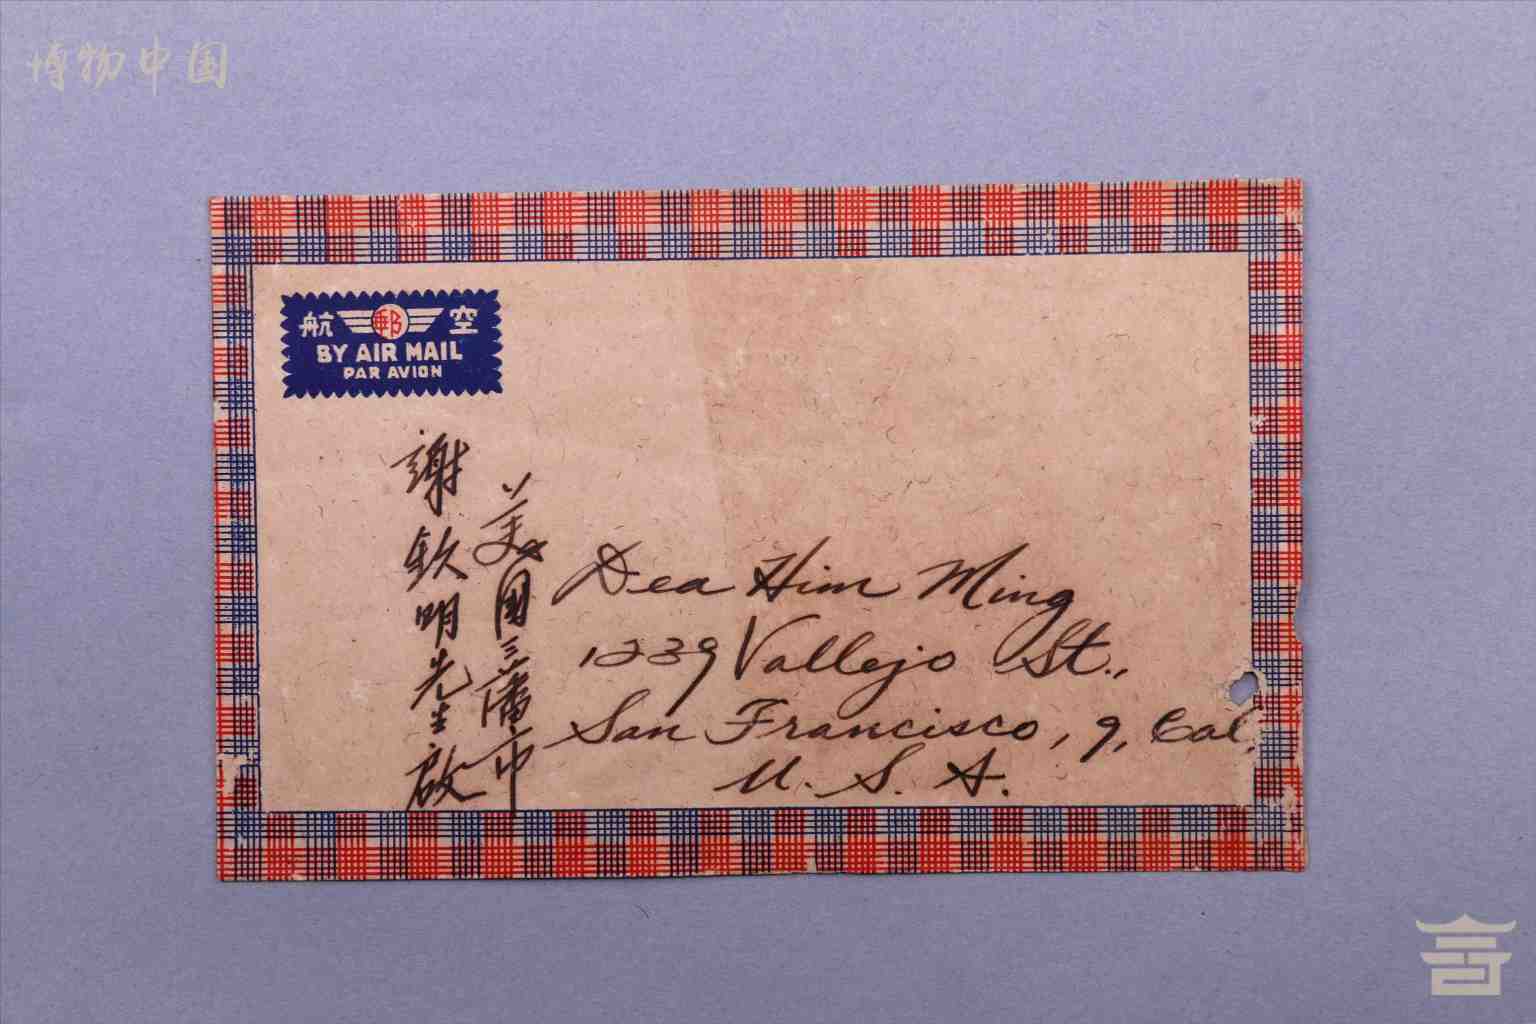 博物中国
航 郵 空
BY AIR MAIL
PAR AVION
美国三藩市
謝欽明先生啟
Dea Him Ming
1239 Vallejo St.,
San Francisco, 9, Cal.
U. S. A.